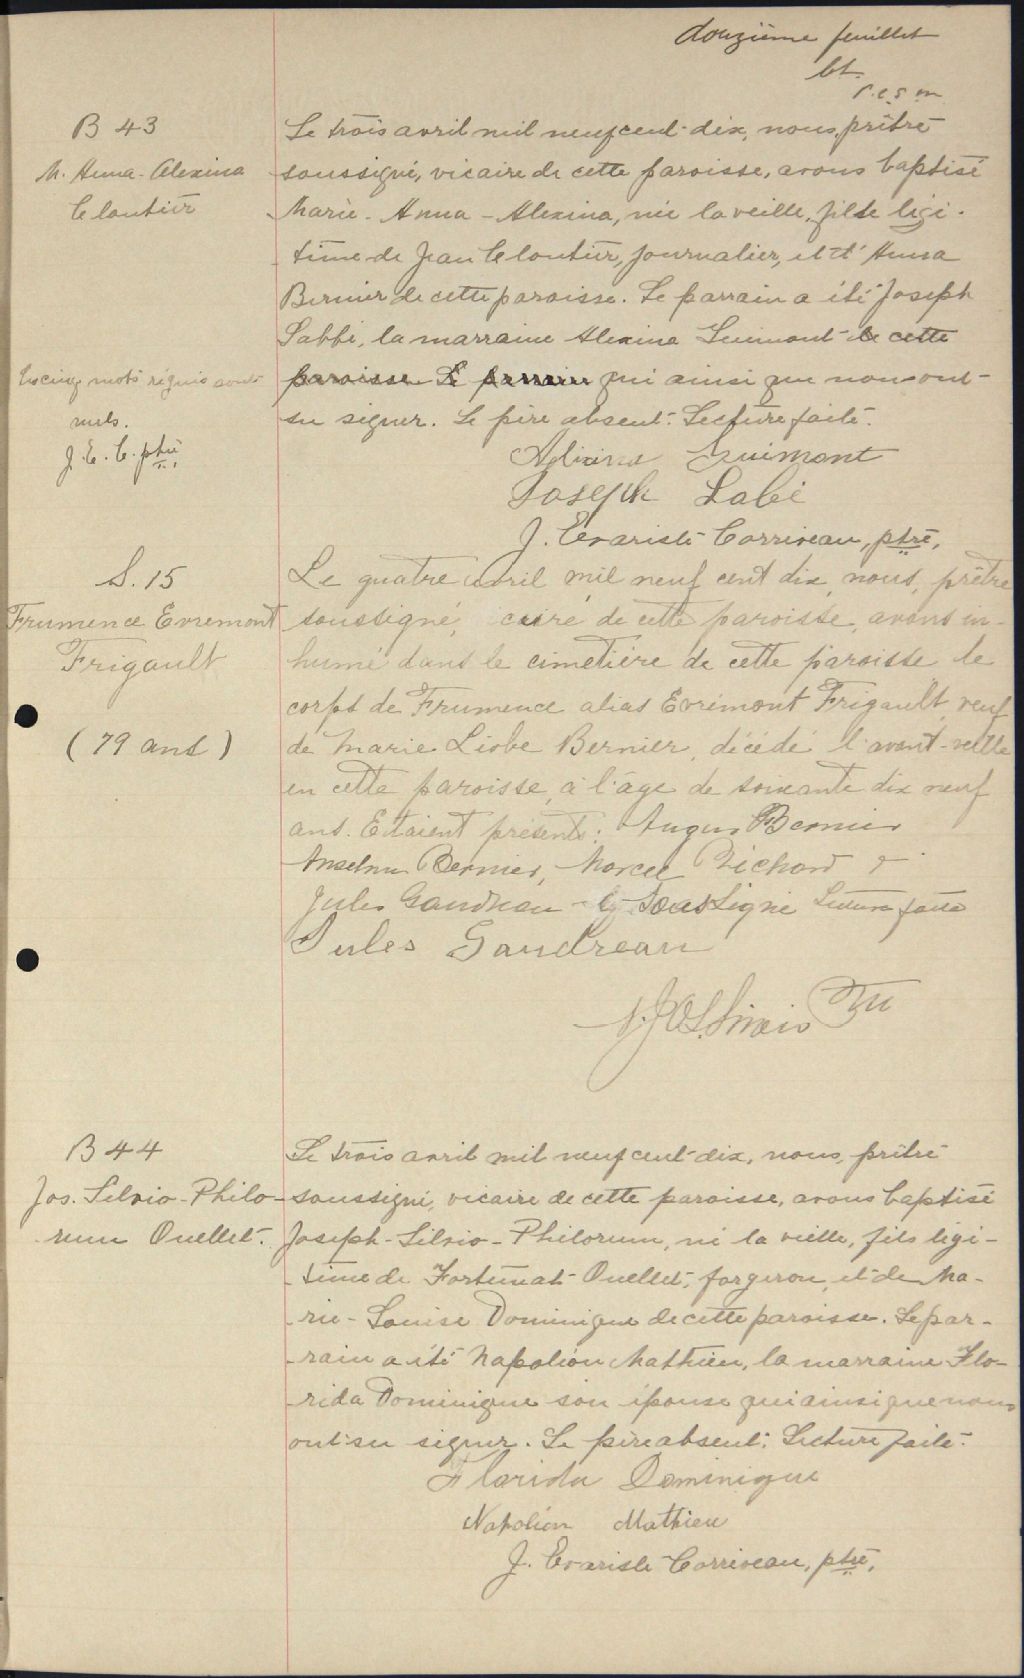 douzième feuillet
bt.
p.c.s.m
B 43
M. Anna-Alexina
Cloutier
Le trois avril mil neuf cent-dix, nous, prêtre
soussigné, vicaire de cette paroisse, avons baptisé
Marie-Anna-Alexina, née la veille, fille légi-
time de Jean Cloutier, journalier, et d'Anna
Bernier de cette paroisse. Le parrain a été Joseph
Labbé, la marraine Alexina Guimont de cette
paroisse Le parrain qui ainsi que nous ont
su signer. Le père absent. Lecture faite.
Les cinq mots rayés sont
nuls.
J. E. C. ptre
Alexina Guimont
Joseph Labé
J. Evariste Corriveau, ptre,
S. 15
Frumence Evremont
Frigault
(79 ans)
Le quatre avril mil neuf cent dix, nous, prêtre
soussigné, curé de cette paroisse, avons in-
humé dans le cimetière de cette paroisse le
corps de Frumence alias Evrémont Frigault, veuf
de Marie Liobe Bernier, décédé l'avant-veille
en cette paroisse, à l'âge de soixante dix neuf
ans. Etaient présents: Augus Bernier
Anselme Bernier, Marcel Richard &
Jules Gaudreau soussigné Lecture faite
Jules Gaudreau
Ptre
B 44
Jos. Silvio-Philo-
rum Ouellet.
Le trois avril mil neuf cent-dix, nous, prêtre
soussigné, vicaire de cette paroisse, avons baptisé
Joseph-Silvio-Philorum, né la vielle, fils légi-
time de Fortunat Ouellet, forgeron, et de Ma-
rie-Louise Dominique de cette paroisse. Le par-
rain a été Napoléon Mathieu, la marraine Flo-
rida Dominique son épouse qui ainsi que nous
ont su signer. Le père absent. Lecture faite.
Florida Dominique
Napoléon Mathieu
J. Evariste Corriveau, ptre,